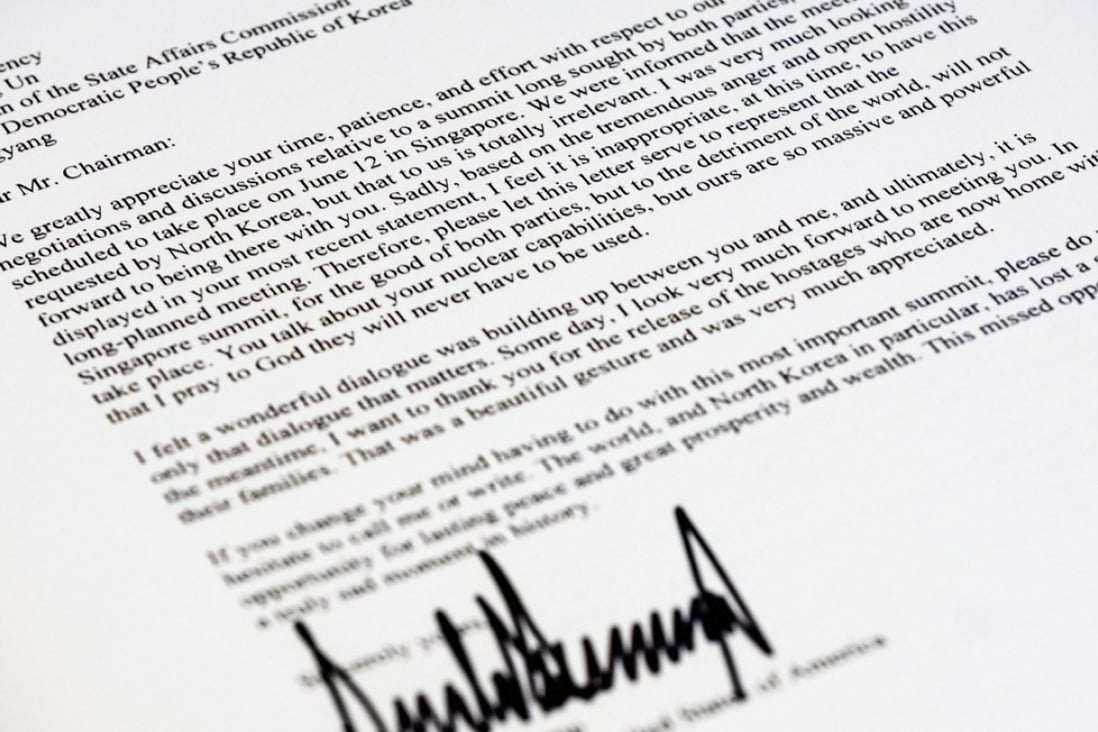 ency
Un
n of the State Affairs Commission
Democratic People's Republic of Korea
gyang
r Mr. Chairman:
We greatly appreciate your time, patience, and effort with respect to our
negotiations and discussions relative to a summit long sought by both parties,
scheduled to take place on June 12 in Singapore. We were informed that the meet
requested by North Korea, but that to us is totally irrelevant. I was very much looking
forward to being there with you. Sadly, based on the tremendous anger and open hostility
displayed in your most recent statement, I feel it is inappropriate, at this time, to have this
long-planned meeting. Therefore, please let this letter serve to represent that the
Singapore summit, for the good of both parties, but to the detriment of the world, will not
take place. You talk about your nuclear capabilities, but ours are so massive and powerful
that I pray to God they will never have to be used.
I felt a wonderful dialogue was building up between you and me, and ultimately, it is
only that dialogue that matters. Some day, I look very much forward to meeting you. In
the meantime, I want to thank you for the release of the hostages who are now home wit
their families. That was a beautiful gesture and was very much appreciated.
If you change your mind having to do with this most important summit, please do
hesitate to call me or write. The world, and North Korea in particular, has lost a
opportunity for lasting peace and great prosperity and wealth. This missed opp
a truly sad moment in history.
States of America